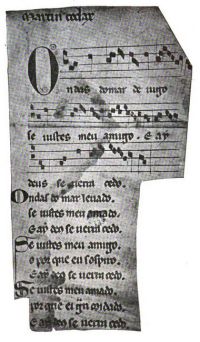 Martin codax
Ondas do mar de uigo
se uistes meu amigo. E ay
deus se uerra cedo.
Ondas do mar leuado.
se uistes meu amado.
E ay deo se uerra cedo.
Se uistes meu amigo.
o por que eu sospiro.
E ay deo se uerra cedo.
Se uistes meu amado.
por que ei gñ coidado.
E ay deo se uerra cedo